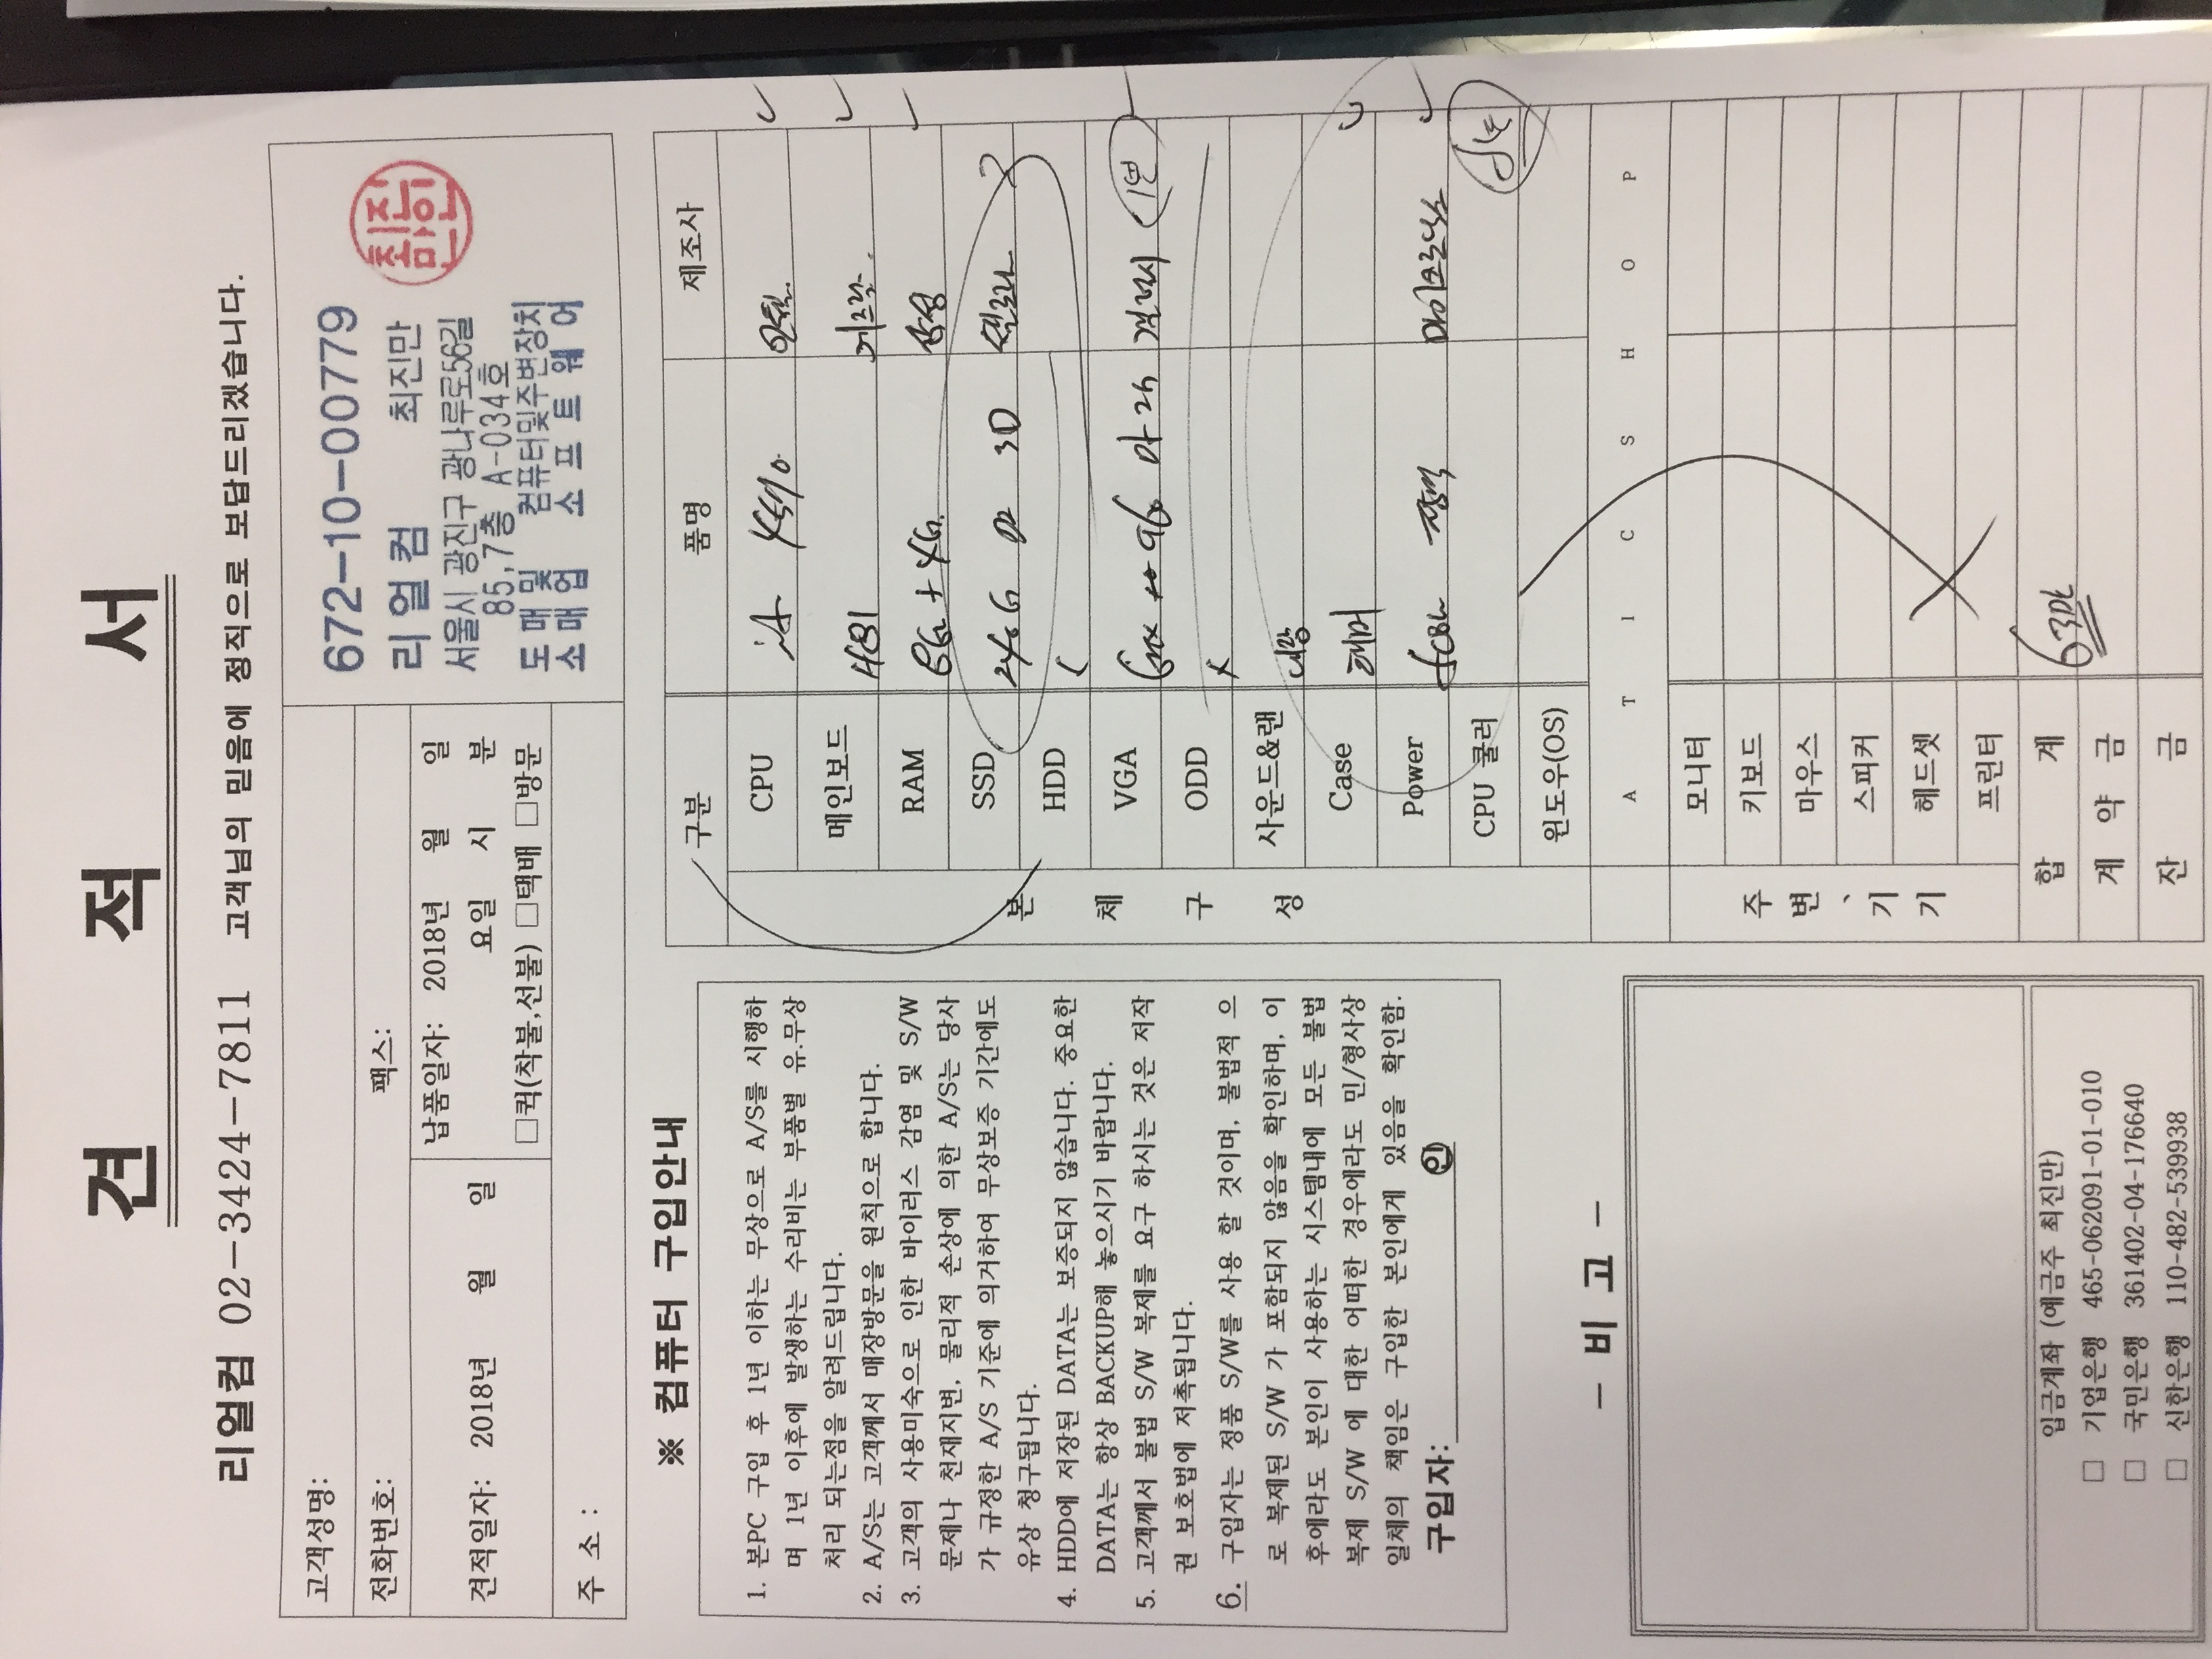 견 적 서
리얼컴 02-3424-7811 고객님의 믿음에 정직으로 보답드리겠습니다.
고객성명:
전화번호: 팩스:
견적일자: 2018년 월 일
납품일자: 2018년 월 일
요일 시 분
□퀵(착불,선불) □택배 □방문
주 소 :
672-10-00779
리얼컴 최진만
서울시 광진구 광나루로56길
85,7층 A-034호
도매및 컴퓨터및주변장치
소매업 소프트웨어
※ 컴퓨터 구입안내
1. 본PC 구입 후 1년 이하는 무상으로 A/S를 시행하
며 1년 이후에 발생하는 수리비는 부품별 유.무상
처리 되는점을 알려드립니다.
2. A/S는 고객께서 매장방문을 원칙으로 합니다.
3. 고객의 사용미숙으로 인한 바이러스 감염 및 S/W
문제나 천재지변, 물리적 손상에 의한 A/S는 당사
가 규정한 A/S 기준에 의거하여 무상보증 기간에도
유상 청구됩니다.
4. HDD에 저장된 DATA는 보증되지 않습니다. 중요한
DATA는 항상 BACKUP해 놓으시기 바랍니다.
5. 고객께서 불법 S/W 복제를 요구 하시는 것은 저작
권 보호법에 저촉됩니다.
6. 구입자는 정품 S/W를 사용 할 것이며, 불법적 으
로 복제된 S/W 가 포함되지 않음을 확인하며, 이
후에라도 본인이 사용하는 시스템내에 모든 불법
복제 S/W 에 대한 어떠한 경우에라도 민/형사상
일체의 책임은 구입한 본인에게 있음을 확인함.
구입자: 인
- 비 고 -
입금계좌 (예금주 최진만)
□ 기업은행 465-062091-01-010
□ 국민은행 361402-04-176640
□ 신한은행 110-482-539938
구분 품명 제조사
본 체 구 성
CPU i5 4570 인텔
메인보드 H81
RAM 8G + 4G 삼성
SSD 3D
HDD
VGA 960 갤럭시 1년
ODD X
사운드&랜 내장
Case
Power 정격 마이크로닉스
CPU 쿨러
윈도우(OS)
A T I C S H O P
주 변 기 기
모니터
키보드
마우스
스피커
헤드셋
프린터
합 계 63
계 약 금
잔 금